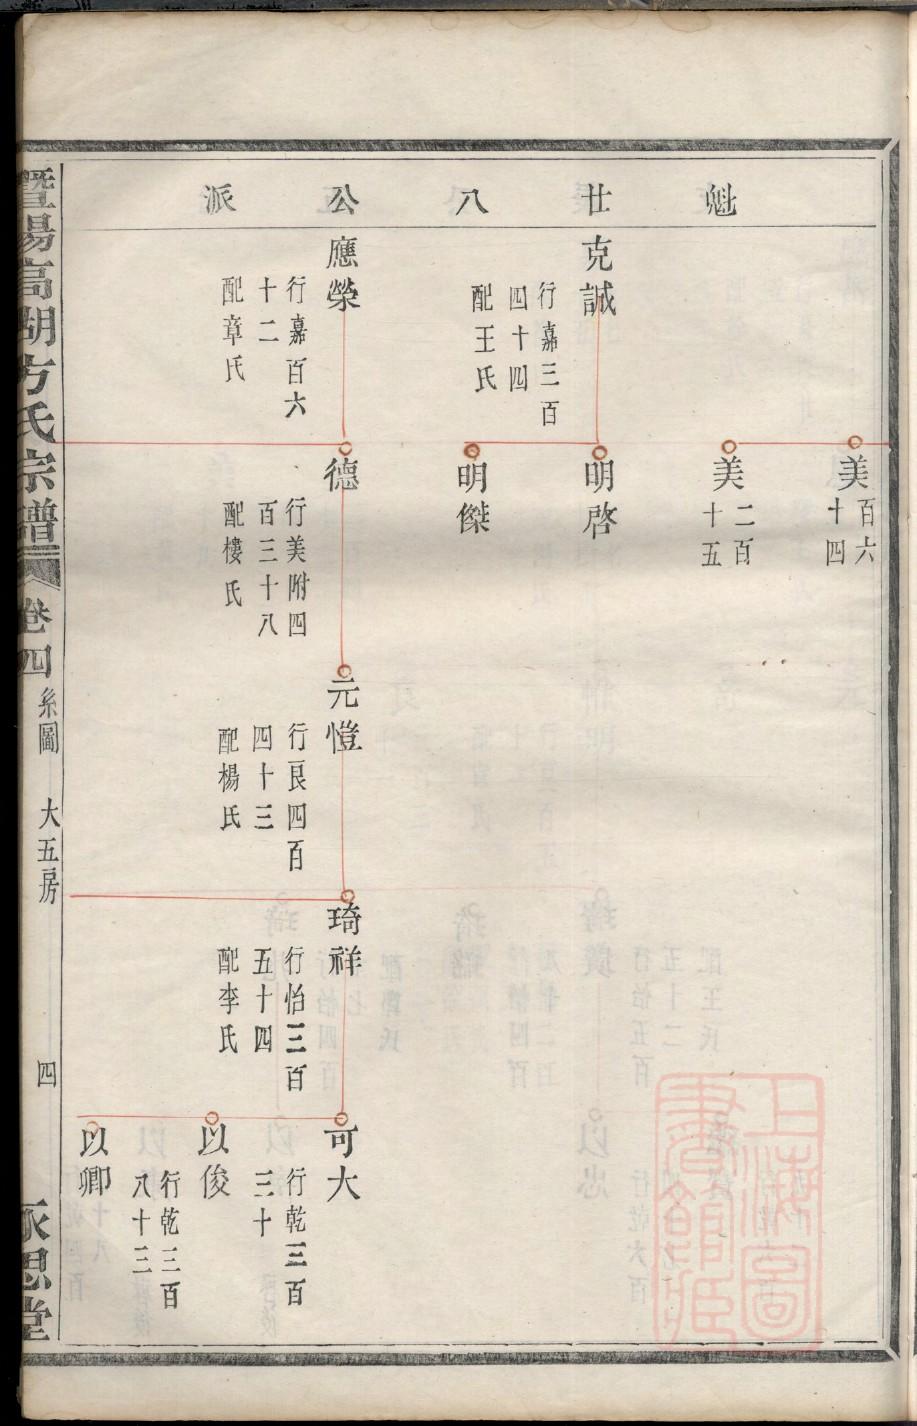 魁廿八公派
美
百六
十四
美
二百
十五
克誠
行嘉三百
四十四
配王氏
明啓
明傑
應榮
行嘉百六
十二
配章氏
德
行美附四
百三十八
配樓氏
元愷
行良四百
四十三
配楊氏
琦祥
行怡三百
五十四
配李氏
可大
行乾三百
三十
以俊
行乾三百
八十三
以卿
暨陽高湖方氏宗譜
卷四
系圖
大五房
四
永思堂
上海圖書館藏